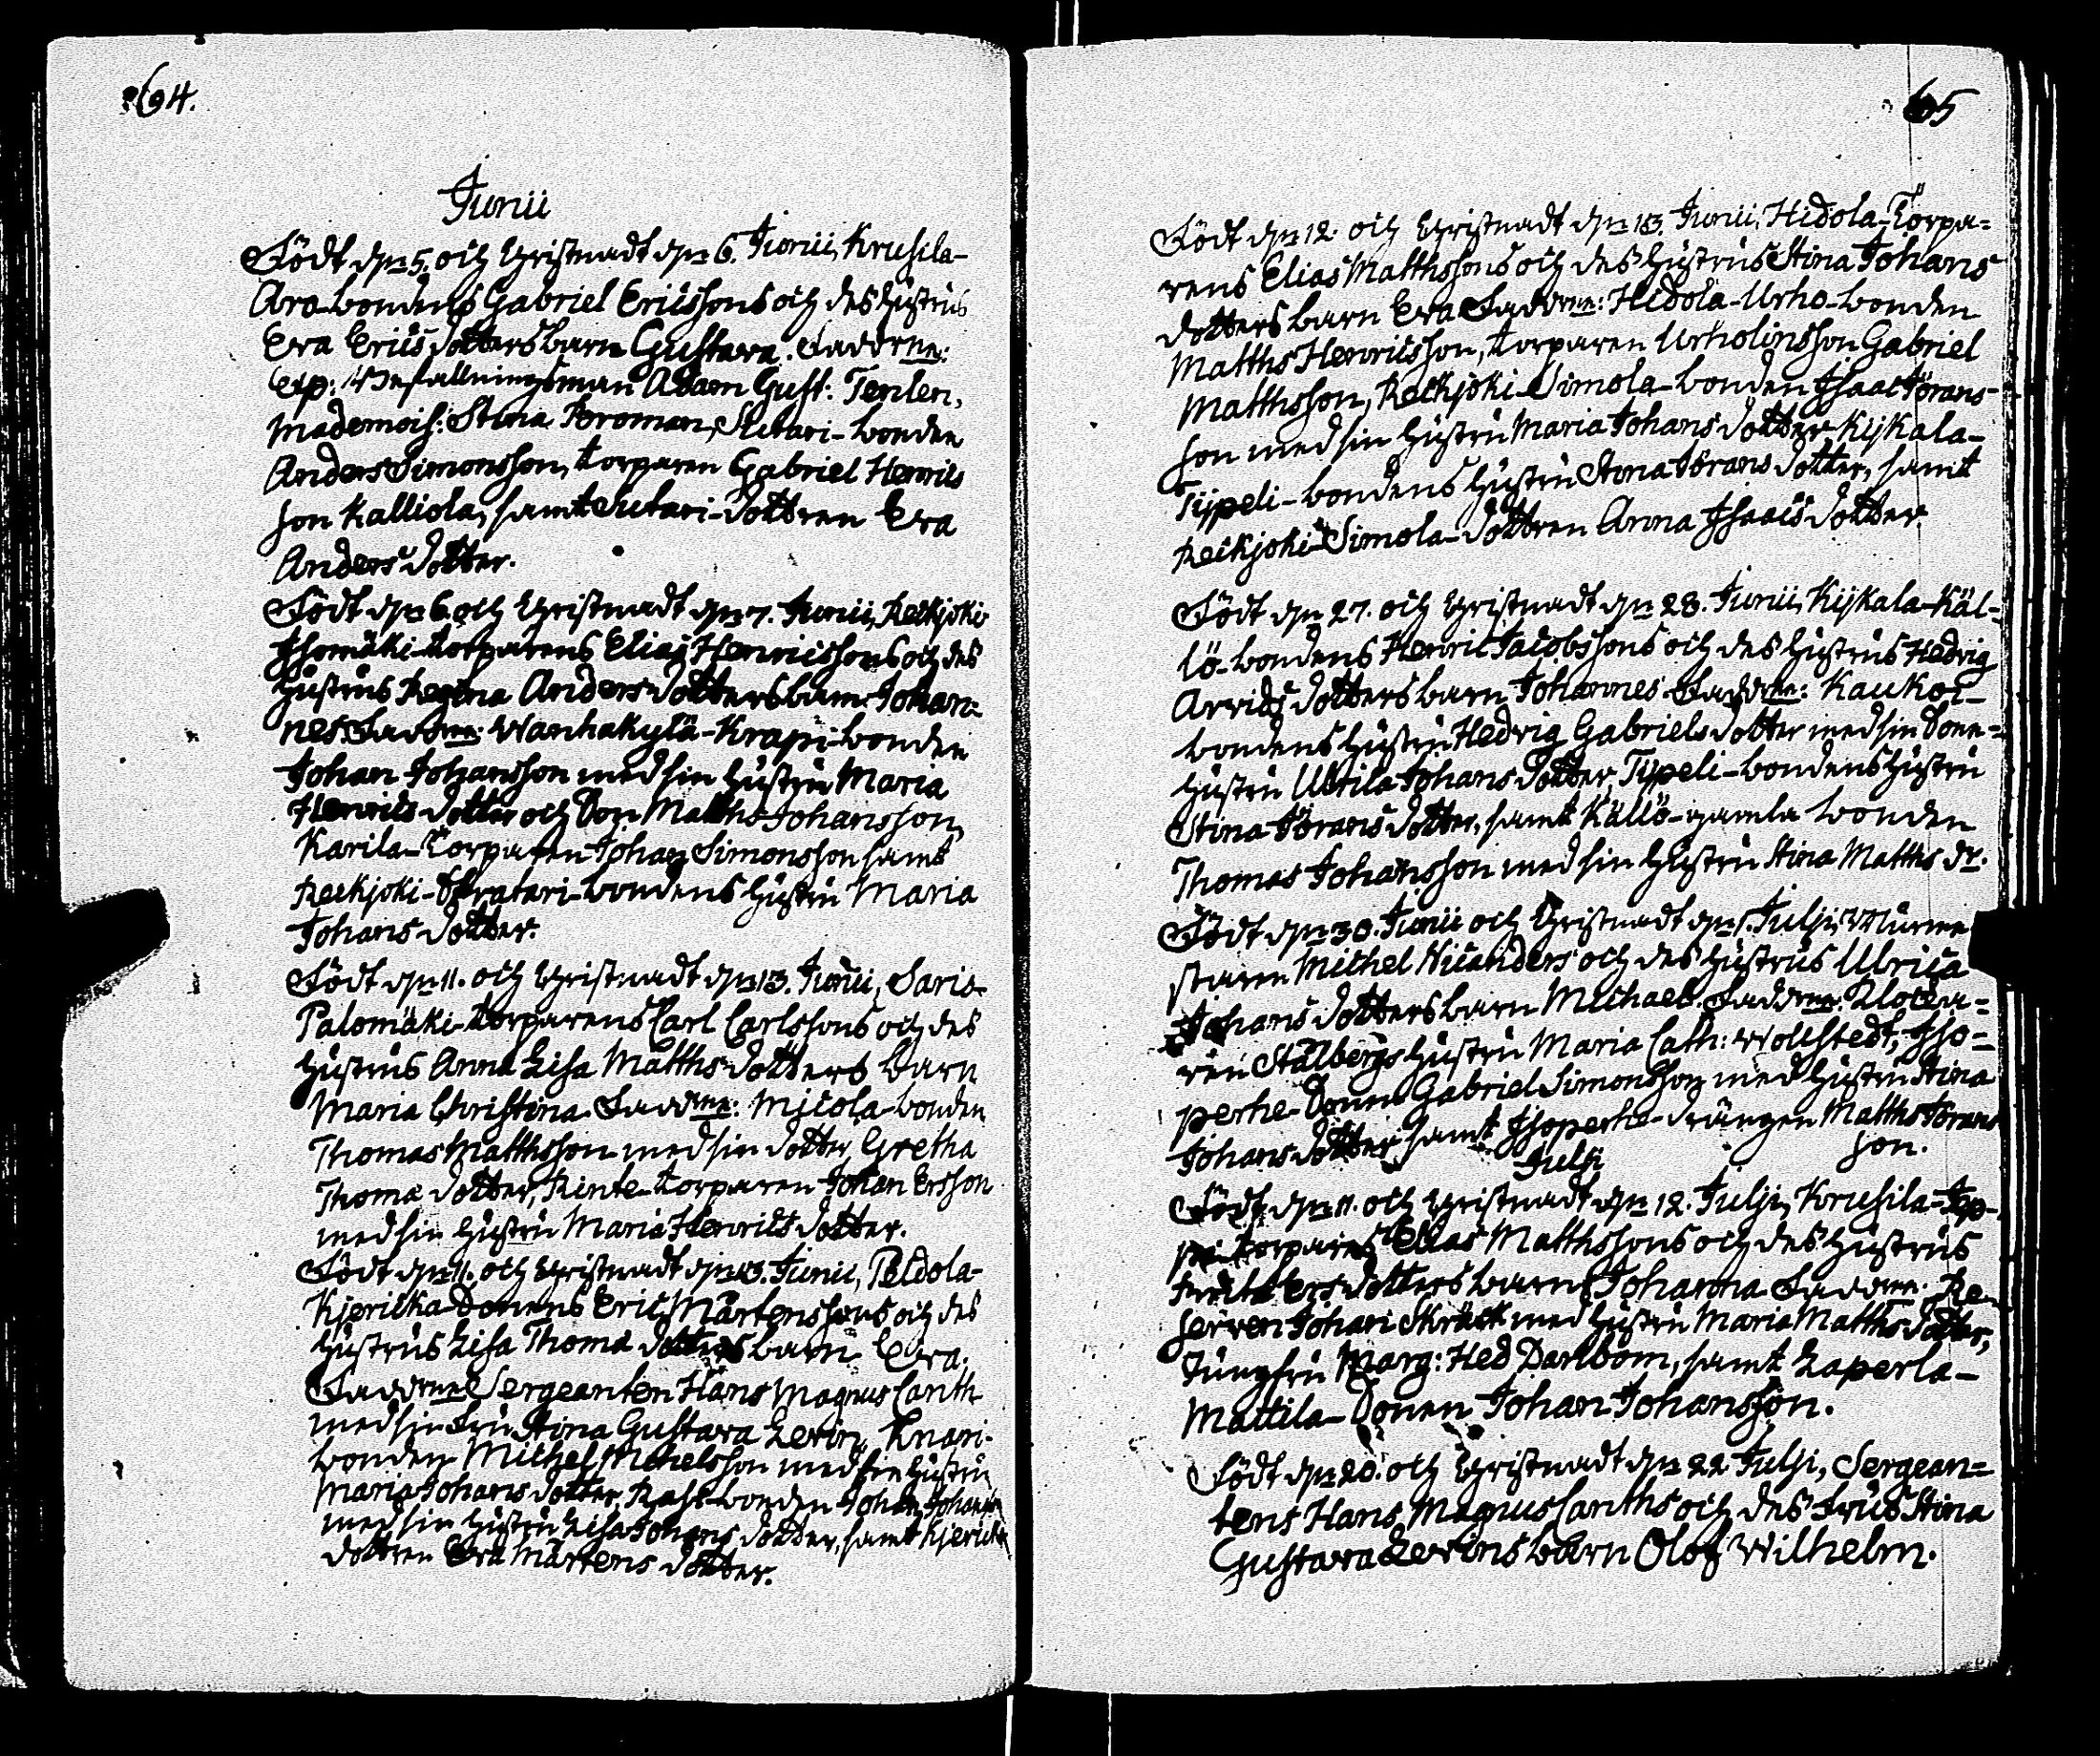 64.
Junii
Födt d. 5. och Christnadt d. 6. Junii, Krusila-
Aro-bondens Gabriel Ericssons och des hustrus
Eva Erics dotters barn Gustava. Faddrne:
Exp: Befallningsman Adam Gust: Tenlen,
Mademois: Stina Broman, Sutari-bonden
Anders Simonsson, torparen Gabriel Henrics
son Kalliola, samt Sutari-dottren Eva
Anders dotter.
Födt d. 6. och Christnadt d. 7. Junii, Reckjoki
Isomäki-torparens Elias Henricssons och des
hustrus Regina Anders dotters barn Johan=
nes Faddrne: Wanhakylä-Krapi-bonden
Johan Johansson med sin hustru Maria
Henrics dotter och Son Matths Johansson,
Karila-Torparen Johan Simonsson samt
Reckjoki-Skratari-bondens hustru Maria
Johans dotter.
Födt d. 11. och Christnadt d. 13. Junii, Saris-
Palomäki-torparens Carl Carlssons och des
hustrus Anna Lisa Matths dotters barn
Maria Christina. Faddrne: Micola-bonden
Thomas Matthsson med sin dotter, Gretha
Thomæ dotter, Rinte-torparen Johan Ersson
med sin hustru Maria Henrics dotter.
Födt d. 11. och Christnadt d. 13. Junii, Peldola-
Kjericka-Sonens Eric Mårtenssons och des
hustrus Lisa Thomæ dotters barn Eva.
Faddrne Sergeanten Hans Magnus Canth
med sin Fru Stina Gustava Levin, Knari-
bonden Michel Michelsson med sin hustru
Maria Johans dotter, Rahi-bonden Johan Johansson
med sin hustru Lisa Johans dotter, samt Kjericka
dottren Eva Mårtens dotter.
65
Födt d. 12. och Christnadt d. 13. Junii, Hidola-Torpa=
rens Elias Matthssons och des hustrus Stina Johans
dotters barn Eva Faddrne: Hidola-Urho-bonden
Matths Henricsson, torparen Urholinsson Gabriel
Matthsson, Reckjoki-Simola-bonden Isaac Jörans-
son med sin hustru Maria Johans dotter Kijkala-
Tijpeli-bondens hustru Stina Jörans dotter, samt
Reckjoki-Simola-dottren Anna Isaacs dotter.
Födt d. 27. och Christnadt d. 28. Junii, Kijkala-Käl-
lö-bondens Henric Jacobssons och des hustrus Hedvig
Arvids dotters barn Johannes Faddrne: Kaukoi-
bondens hustru Hedvig Gabriels dotter med sin Sone=
hustru Ulrila Johans dotter, Tijpeli-bondens hustru
Stina Jörans dotter, samt Källö-gamla bonden
Thomas Johansson med sin hustru Stina Matths dr.
Födt d. 30. Junii och Christnadt d. 1. Julji, Murme
staren Michel Nicanders och des hustrus Ulrica
Johans dotters barn Michael. Faddrne: Klocka=
ren Stålbergs hustru Maria Cath: Wollstedt, Iso=
perhe-Sonen Gabriel Simonsson med hustru Stina
Johans dotter samt Isoperhe-drängen Matths Jörans
son.
Julji
Födt d. 11. och Christnadt d. 12. Julji, Krusila-
torparens Elias Matthssons och des hustrus
Ers dotters barn Johanna Faddrne: Re-
serven Johan Skräck med hustru Maria Matths dotter,
Jungfru Marg: Hed Darlbom, samt Laperla-
Mattila-Sonen Johan Johansson.
Födt d. 20. och Christnadt d. 22 Julji, Sergean=
tens Hans Magnus Canths och des Frus Stina
Gustava Levins barn Olof Wilhelm.